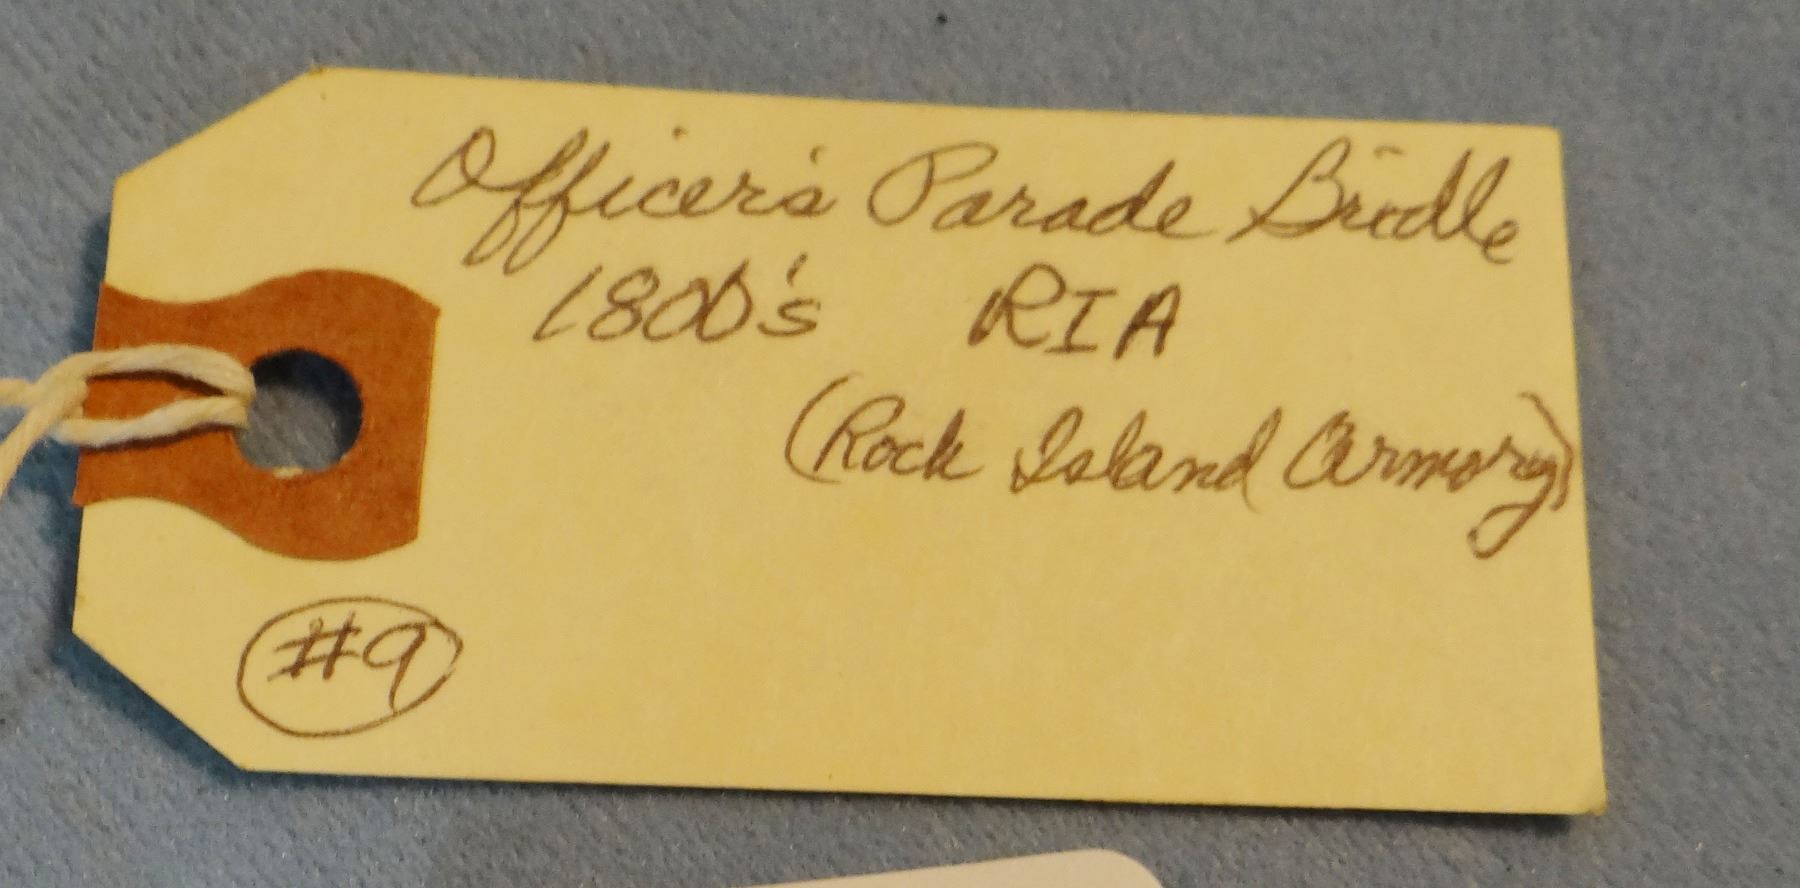 Officer's Parade Bridle
1800's RIA
(Rock Island Armory)
#9